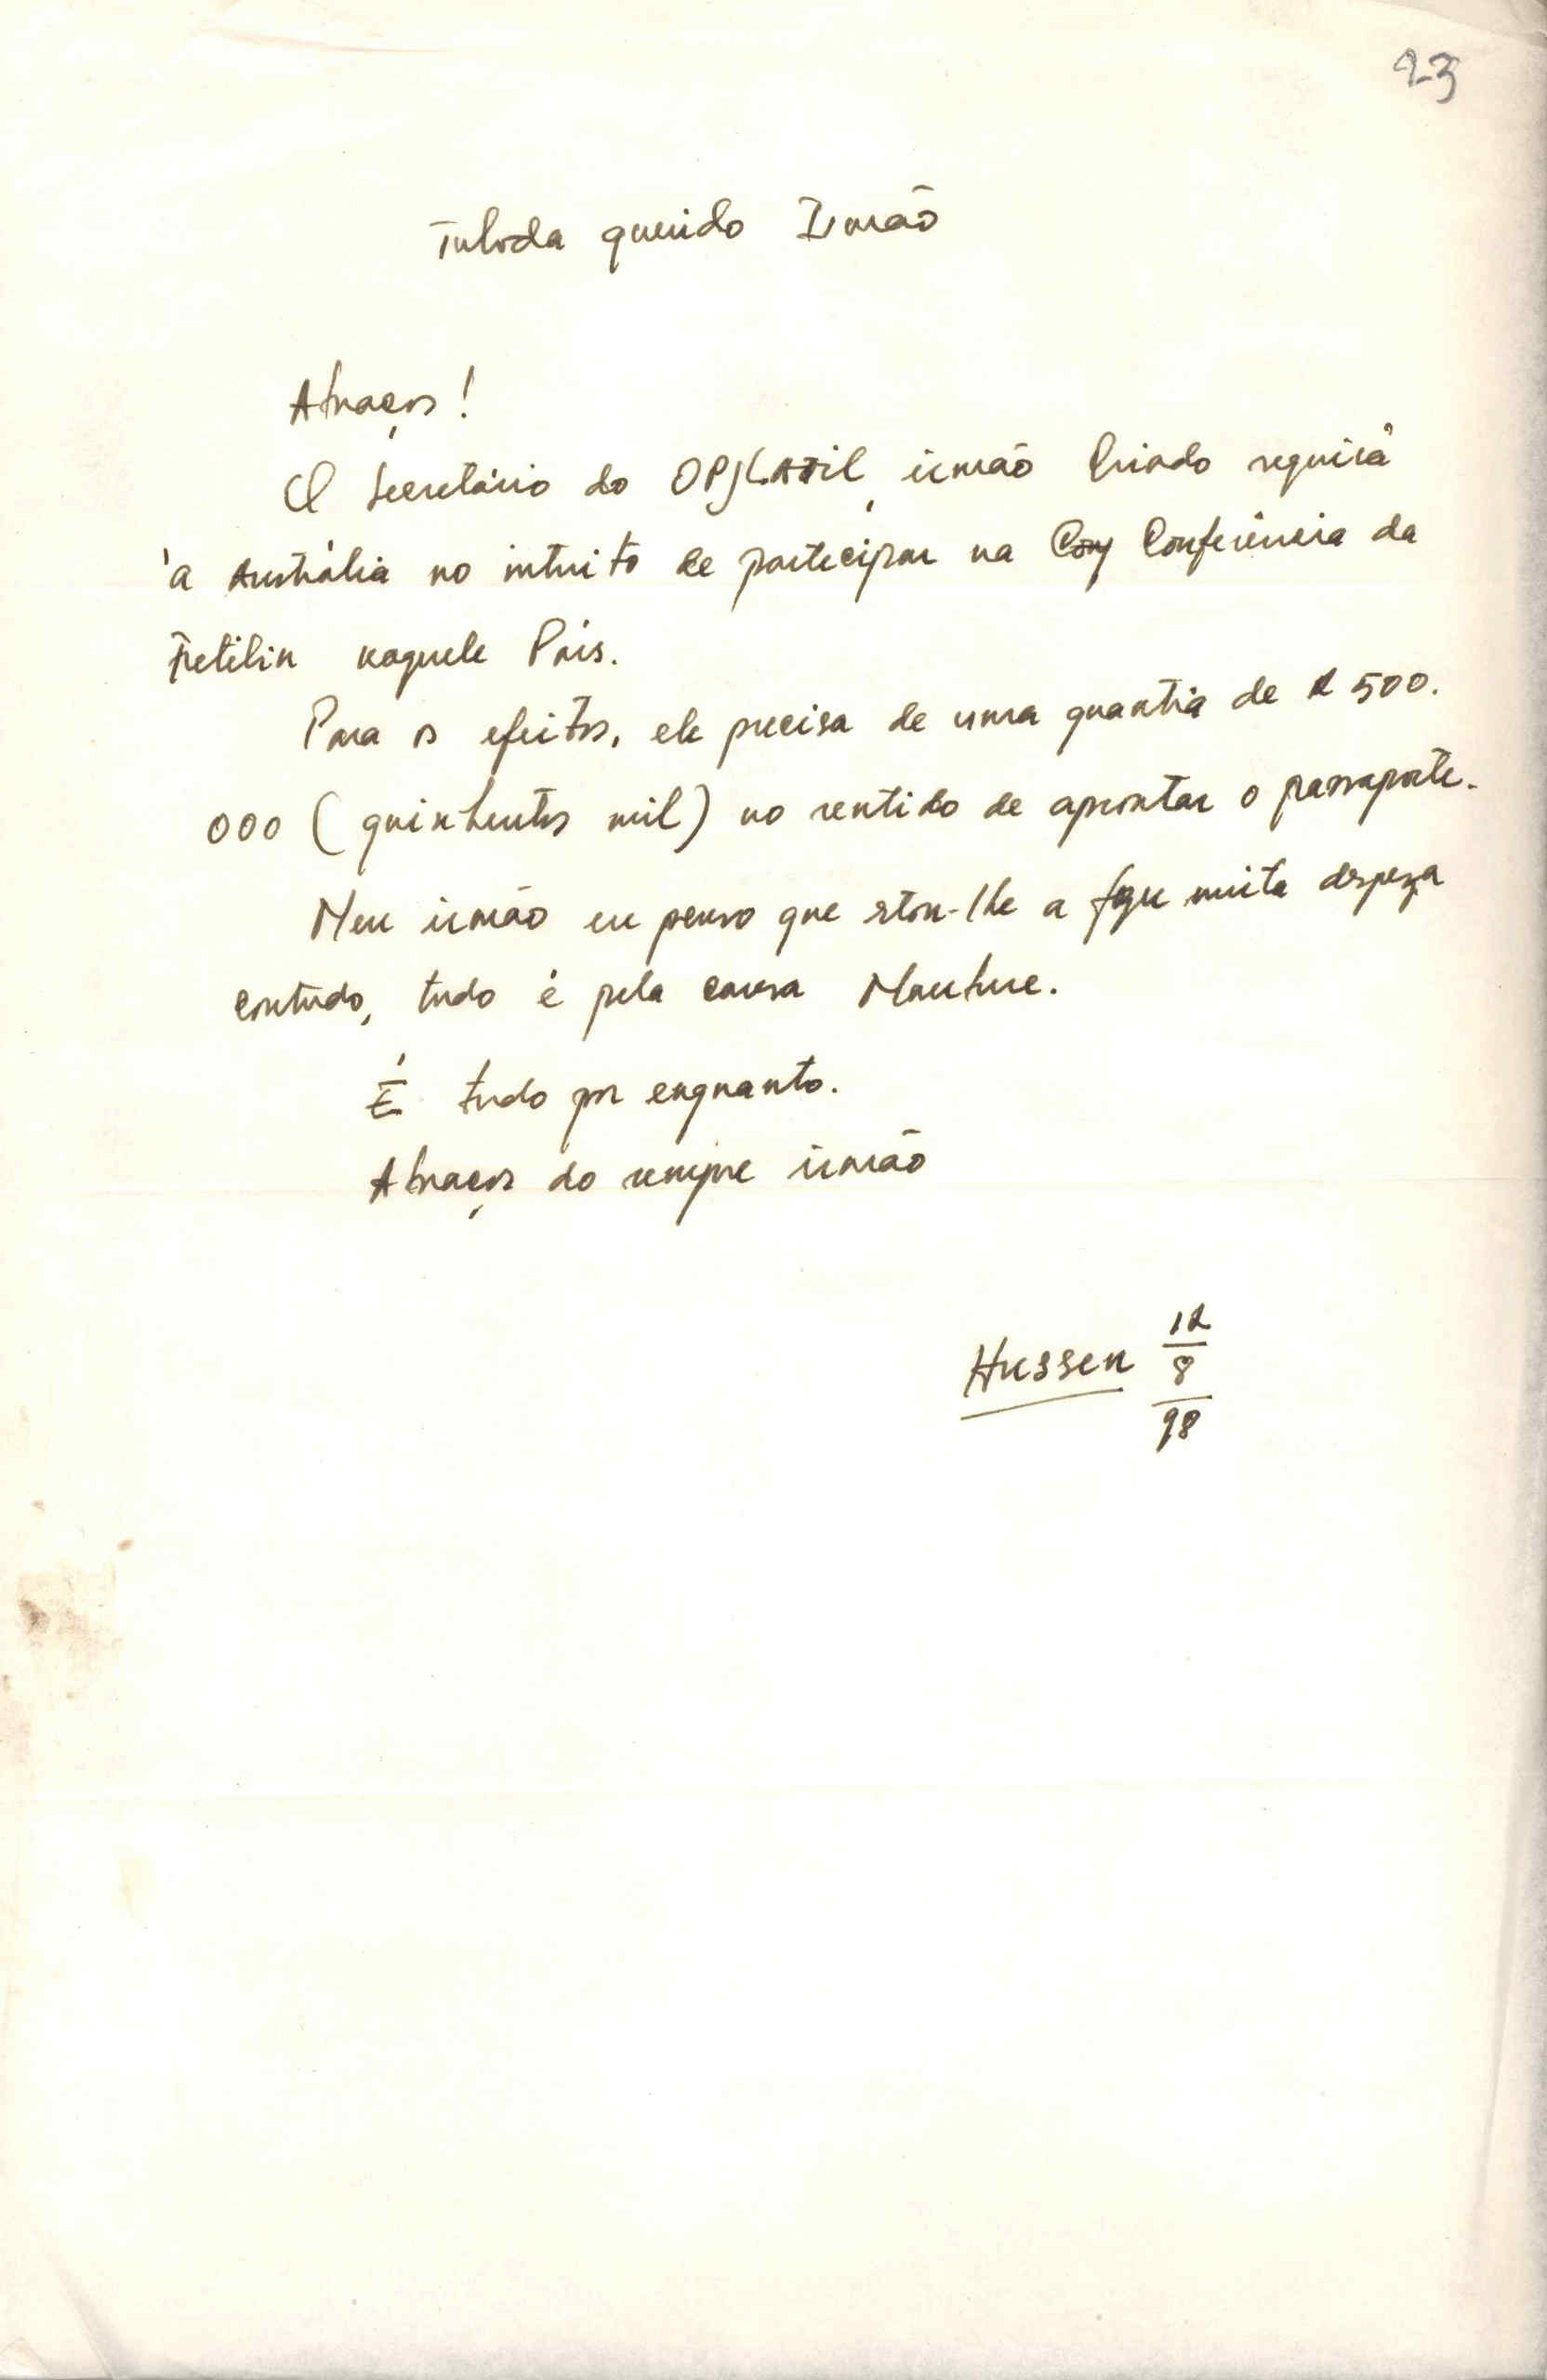 23
Tuloda querido Irmão
Abraços!
O Secretário do OPJLATIL, irmão Criado seguirá
à Austrália no intuito de participar na Conferência da
Fretilin naquele País.
Para os efeitos, ele precisa de uma quantia de R 500.
000 (quinhentos mil) no sentido de aprontar o passaporte.
Meu irmão eu penso que estou-lhe a muita despeza
contudo, tudo é pela causa Maubere.
É tudo por enquanto.
Abraços do sempre irmão
Hussen 12
8
98